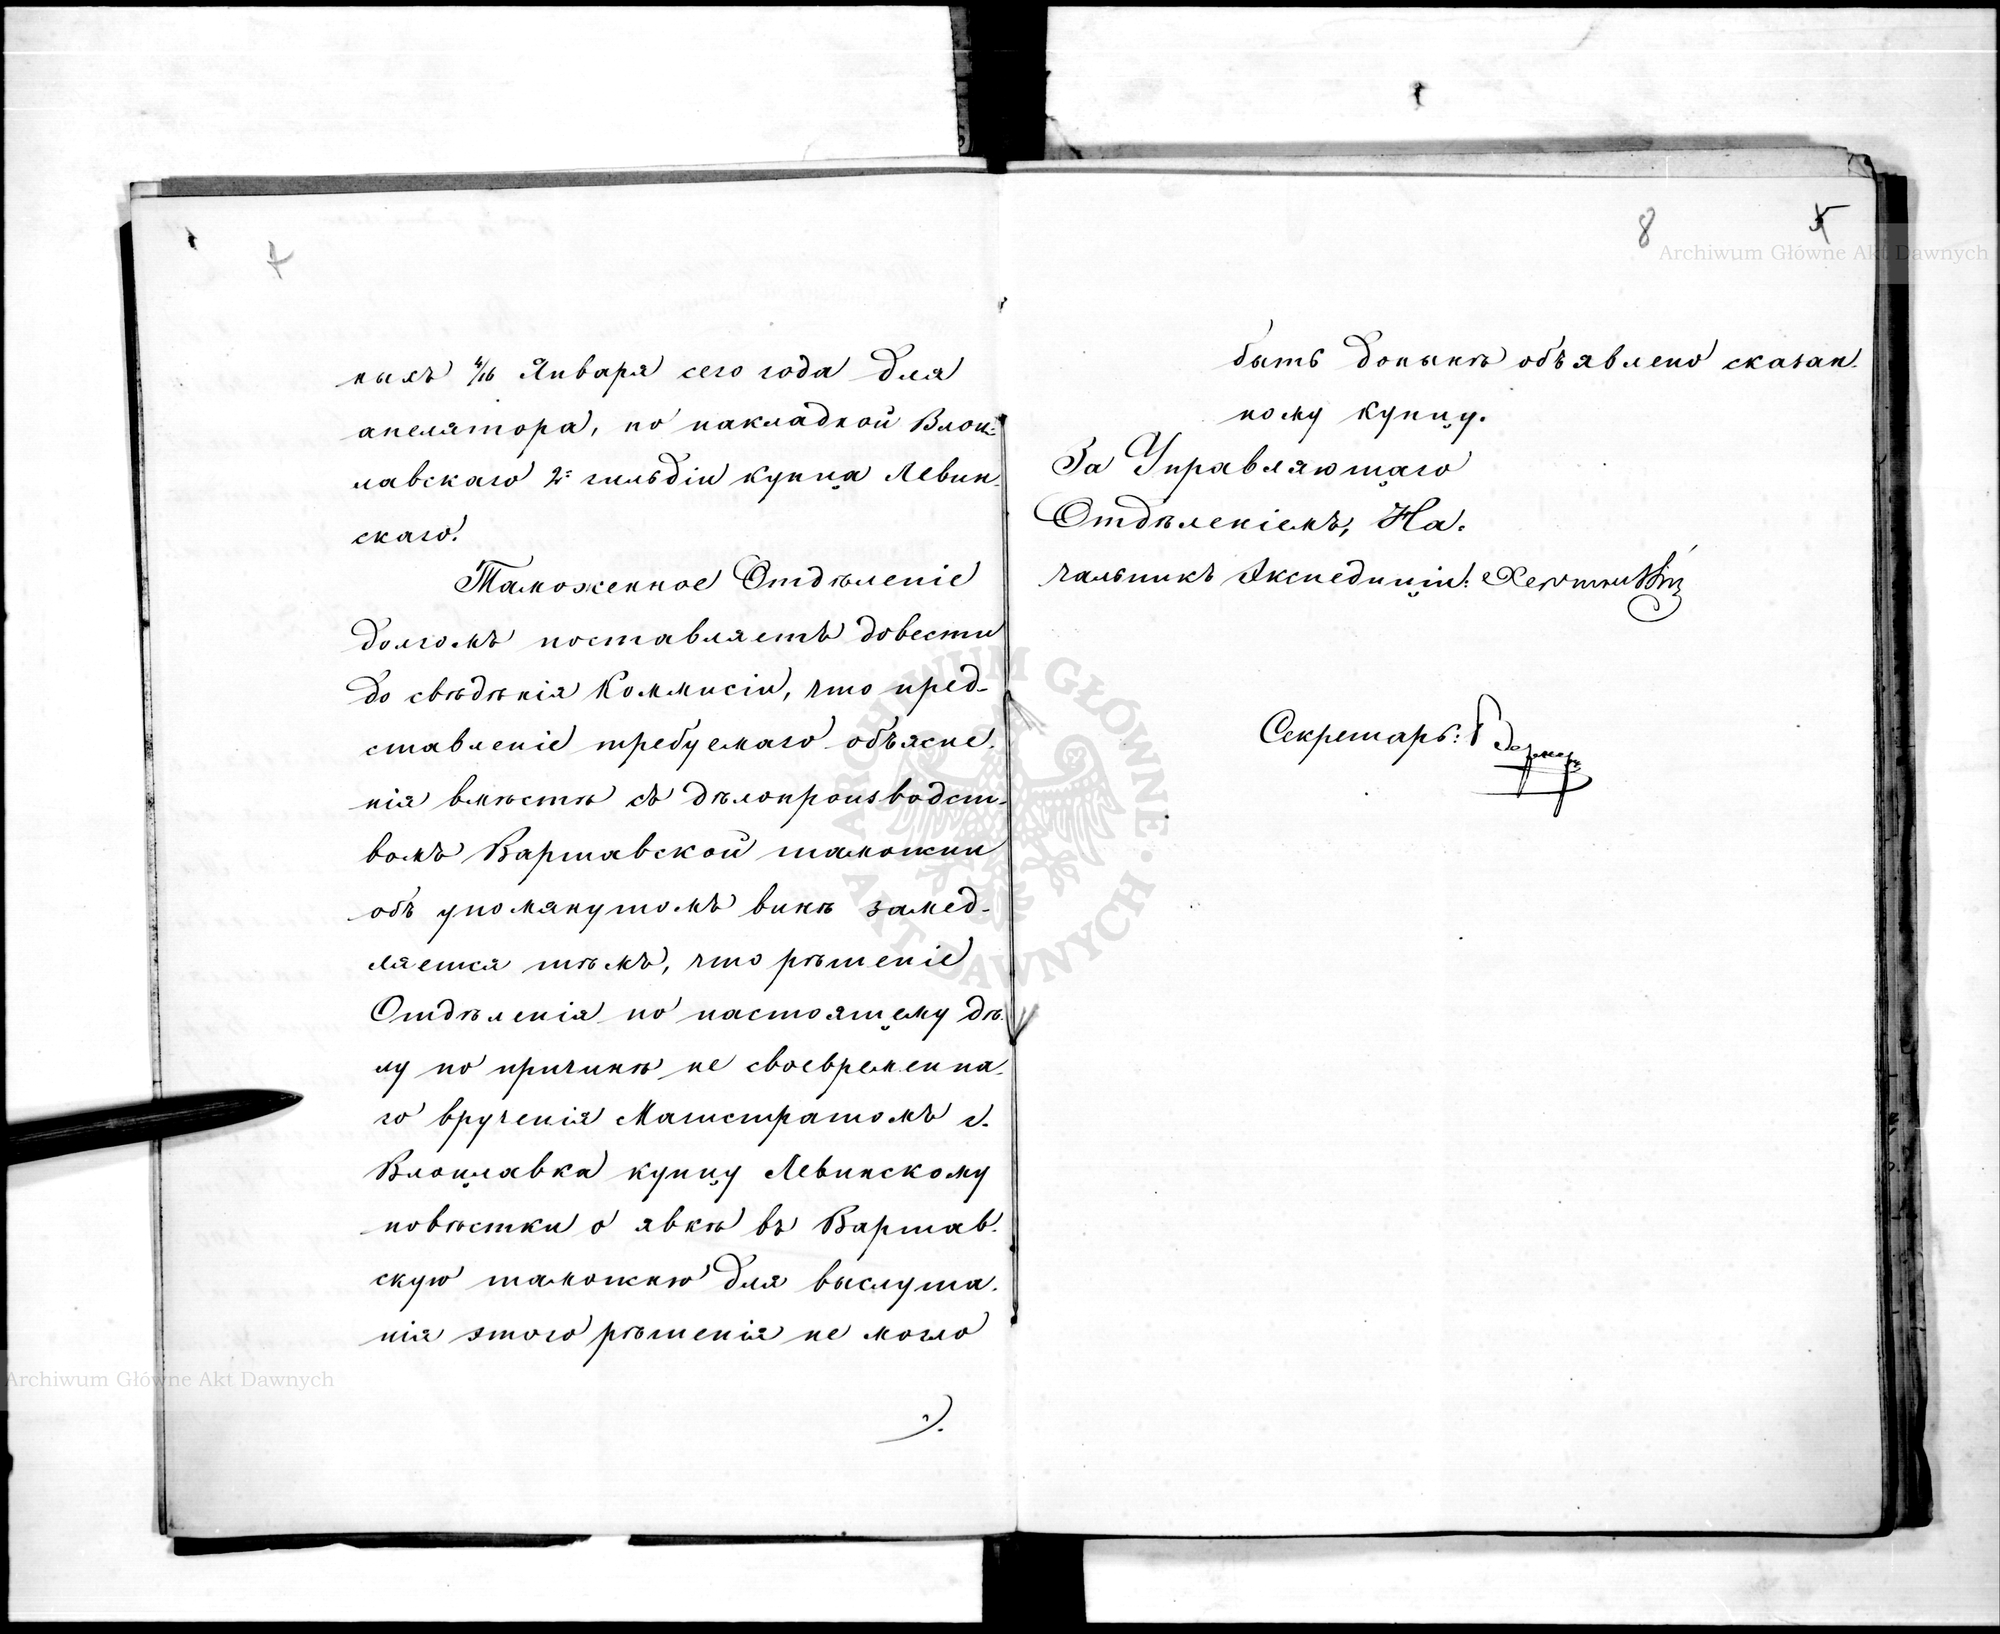 ныхъ 4/16 Января сего года для
апелятора, по накладной Влоц-
лавскаго 2й гильдіи купца Левин-
скаго.
Таможенное Отдѣленіе
долгомъ поставляетъ довести
до свѣдѣнія Коммисіи, что пред-
ставленіе требуемаго объясне-
нія вмѣстѣ съ дѣлопроизводст-
вомъ Варшавской таможни
объ упомянутомъ винѣ замед-
ляется тѣмъ, что рѣшеніе
Отдѣленія по настоящему дѣ-
лу по причинѣ не своевременна-
го врученія Магистратомъ г.
Влоцлавка купцу Левинскому
повѣстки о явкѣ въ Варшав-
скую таможню для выслуша-
нія этого рѣшенія не могло
8
быть донынѣ объявлено сказан-
ному купцу.
За Управляющаго
Отдѣленіемъ, На-
чальникъ Экспедиціи:
Секретарь:
Archiwum Główne Akt Dawnych
ARCHIWUM GŁÓWNE AKT DAWNYCH
Archiwum Główne Akt Dawnych